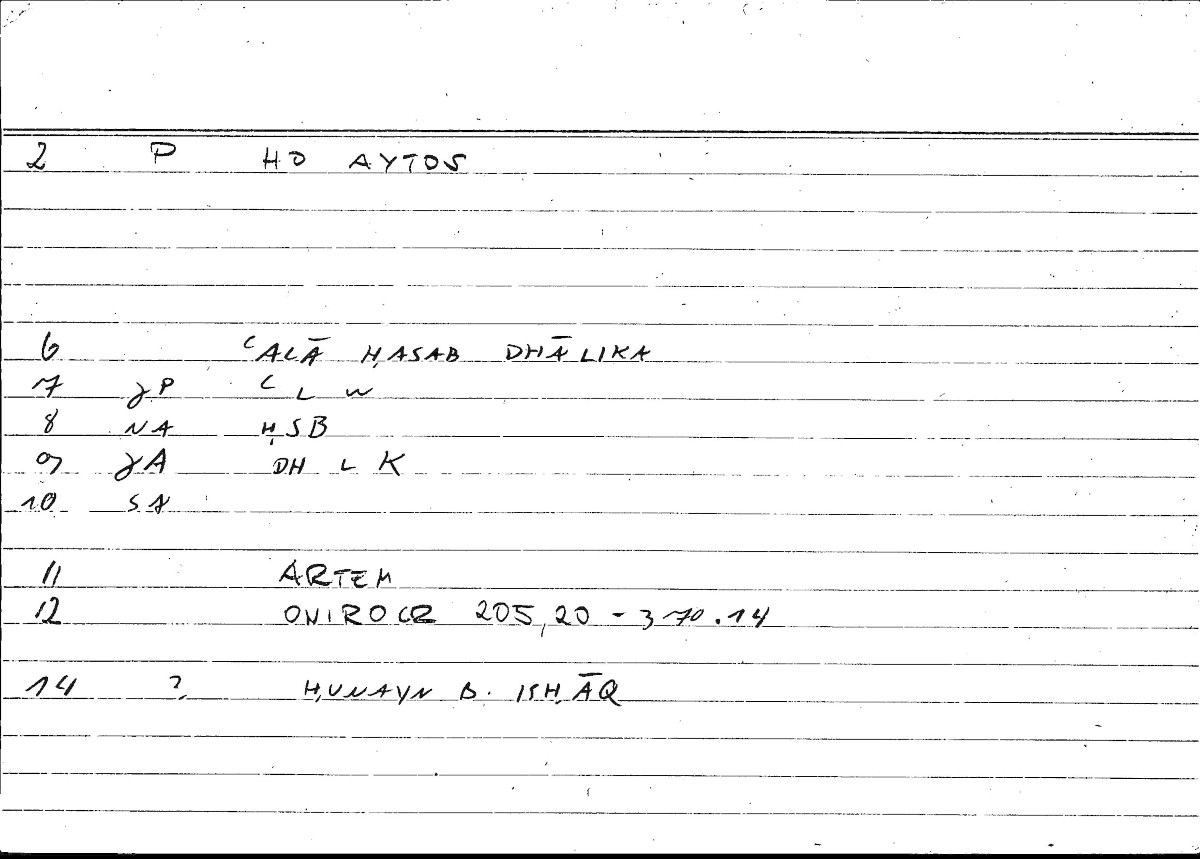 2 P HO AYTOS
6 ʿALĀ ḤASAB DHĀLIKA
7 JP ʿ L W
8 NA ḤSB
9 JA DH L K
10 SA
11 ARTEM
12 ONIROCR 205,20 - 370.14
14 ? ḤUNAYN B. ISḤĀQ